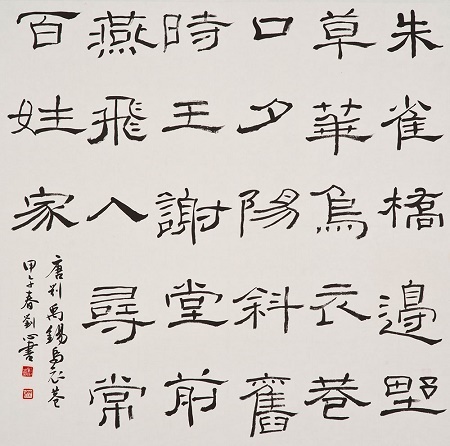 朱雀橋邊野
草華烏衣巷
口夕陽斜舊
時王謝堂前
燕飛入尋常
百姓家
唐刘禹錫烏衣巷
甲午春劉心書